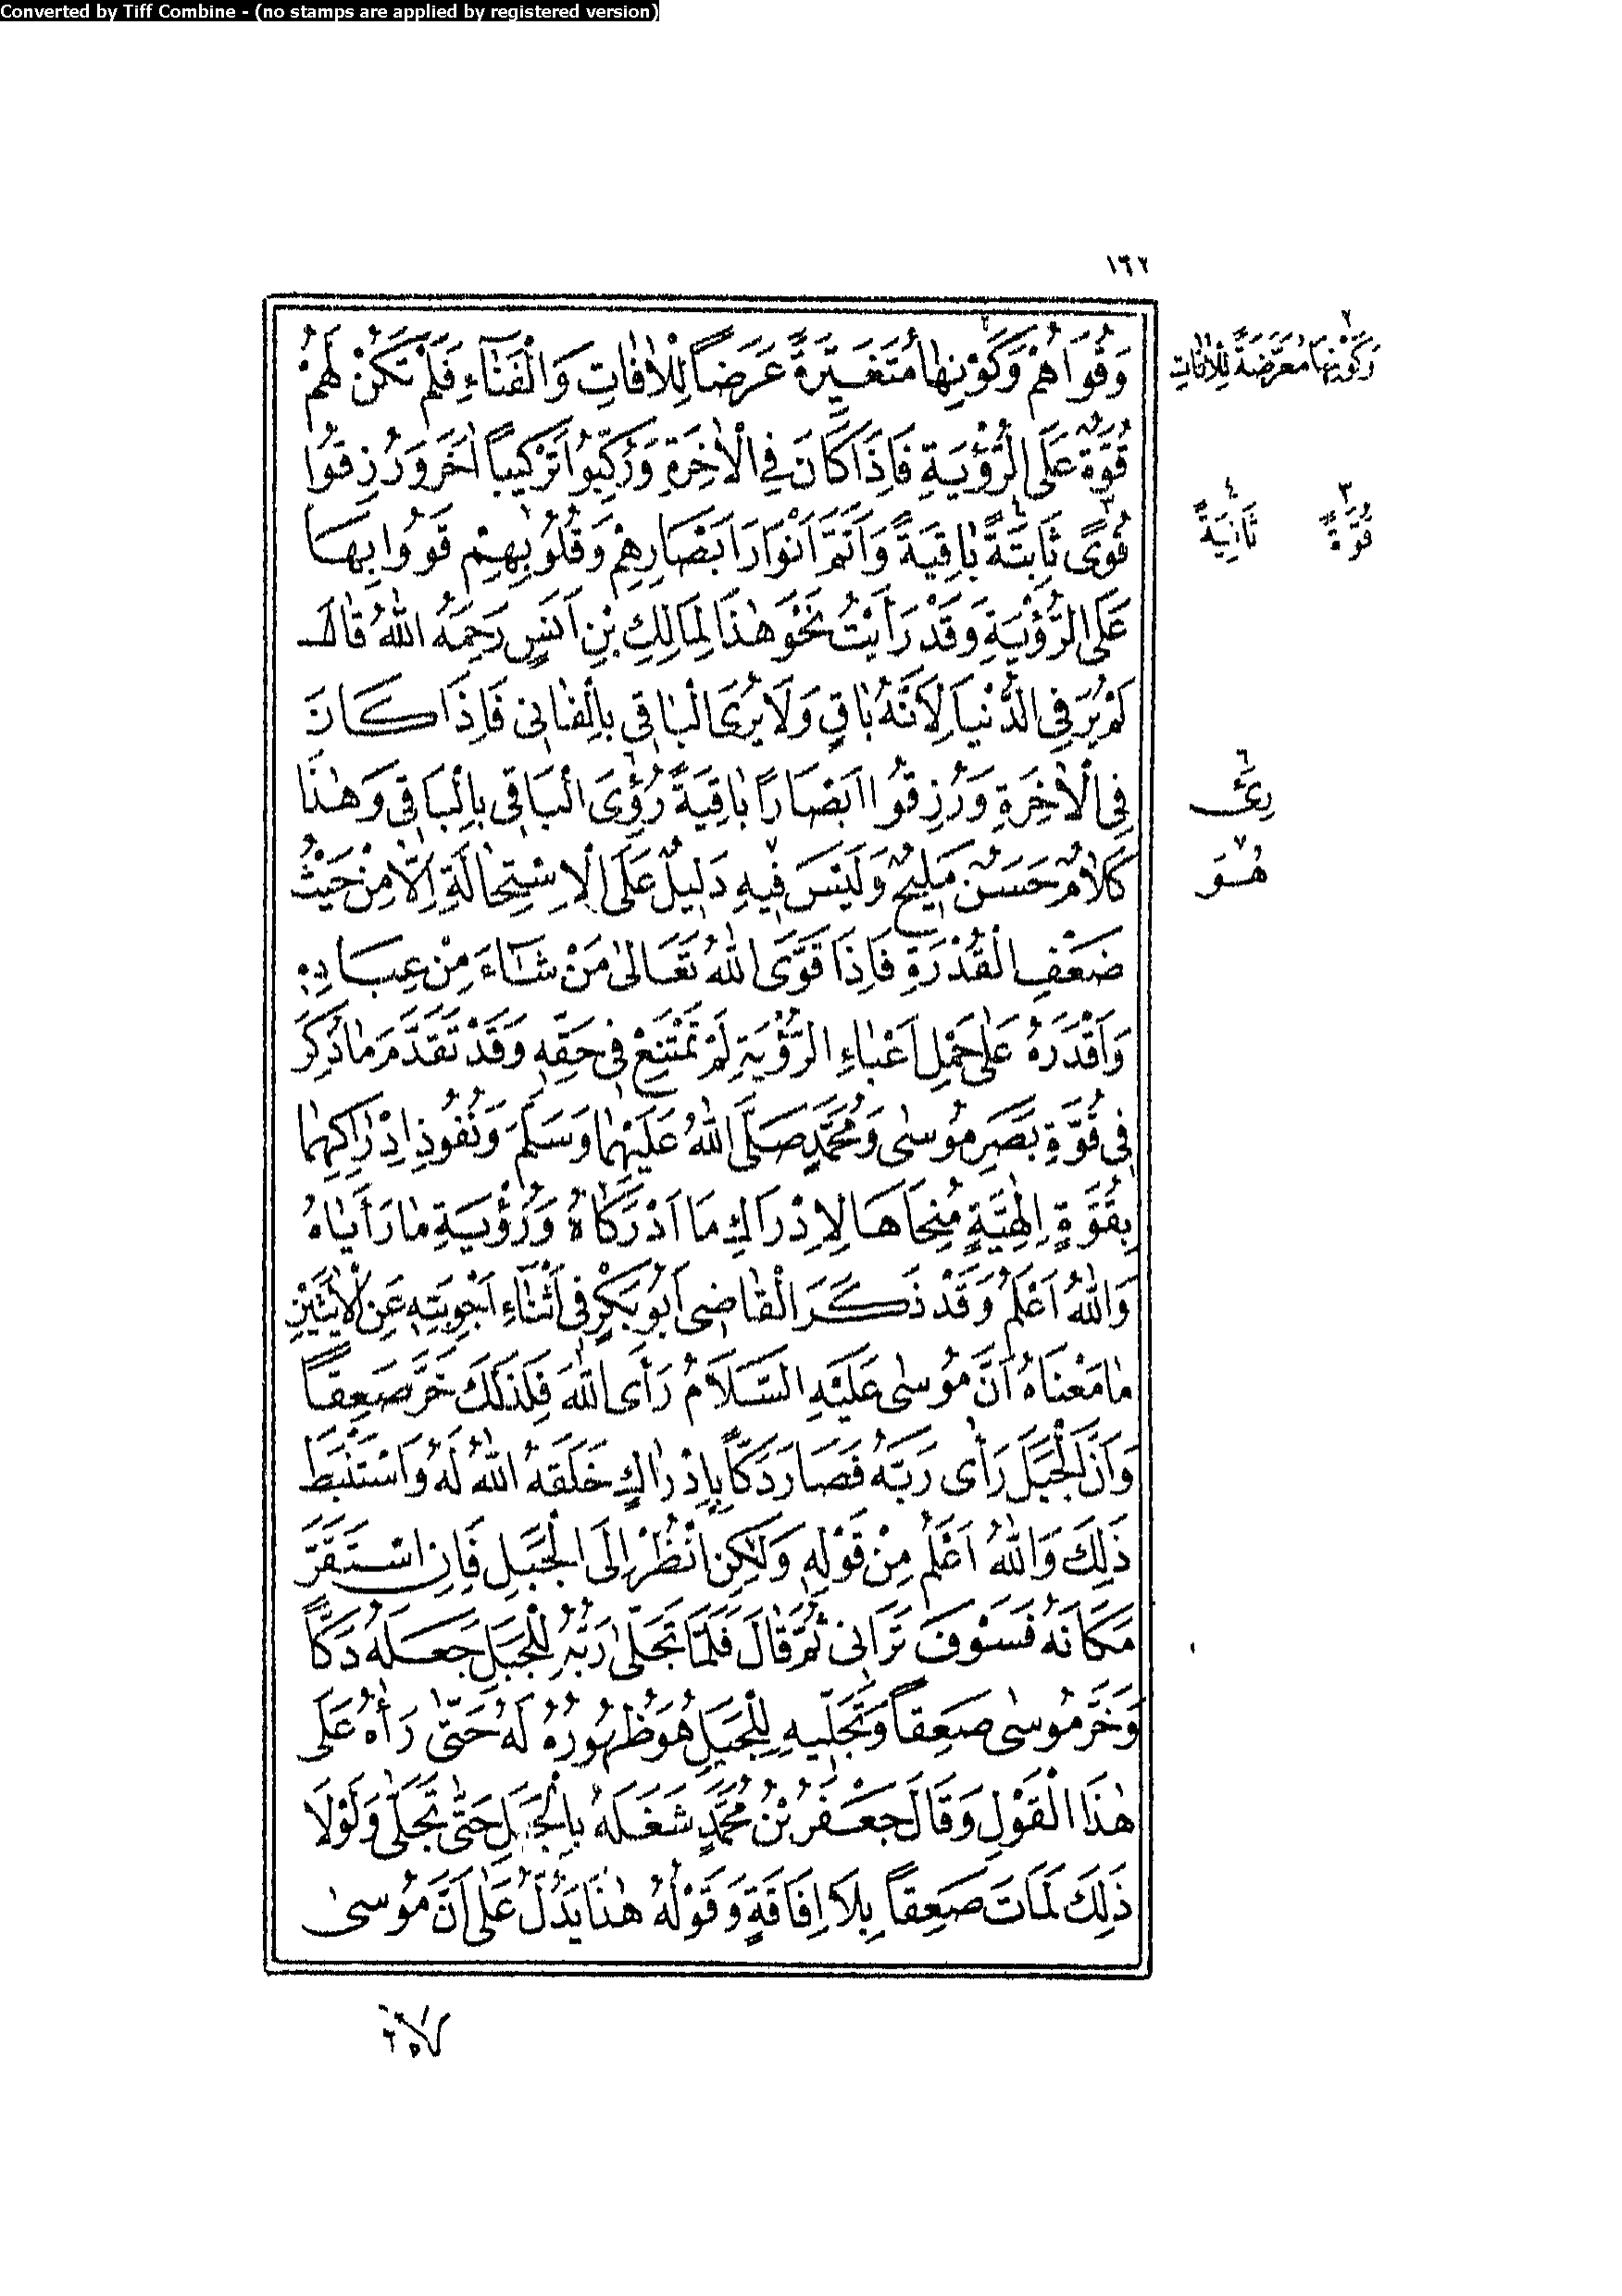 Converted by Tiff Combine - (no stamps are applied by registered version)
١٦٢
وَقُوَاهُمْ وَكَوْنِهَا مُتَغَيِّرَةً عَرَضاً لِلْاٰفَاتِ وَالْفَنَاءِ فَلَمْ تَكُنْ لَهُمْ
قُوَّةٌ عَلَى الرُّؤْيَةِ فَاِذَا كَانَ فِي الْاٰخِرَةِ وَرُكِّبُوا تَرْكِيباً اٰخَرَ وَرُزِقُوا
قُوًى ثَابِتَةً بَاقِيَةً وَاَتَمَّ اَنْوَارَ اَبْصَارِهِمْ وَقُلُوبِهِمْ قَوُوا بِهَا
عَلَى الرُّؤْيَةِ وَقَدْ رَأَيْتُ نَحْوَ هٰذَا لِمَالِكِ بْنِ اَنَسٍ رَحِمَهُ اللّٰهُ قَالَ
لَمْ يُرَ فِي الدُّنْيَا لِاَنَّهُ بَاقٍ وَلَا يُرَى الْبَاقِي بِالْفَانِي فَاِذَا كَانَ
فِي الْاٰخِرَةِ وَرُزِقُوا اَبْصَارًا بَاقِيَةً رُؤِىَ الْبَاقِي بِالْبَاقِي وَهٰذَا
كَلَامٌ حَسَنٌ مَلِيحٌ وَلَيْسَ فِيهِ دَلِيلٌ عَلَى الْاِسْتِحَالَةِ اِلَّا مِنْ حَيْثُ
ضَعْفِ الْقُدْرَةِ فَاِذَا قَوَّى اللّٰهُ تَعَالٰى مَنْ شَاءَ مِنْ عِبَادِهِ
وَاَقْدَرَهُ عَلٰى حَمْلِ اَعْبَاءِ الرُّؤْيَةِ لَمْ تَمْتَنِعْ فِي حَقِّهِ وَقَدْ تَقَدَّمَ مَا ذُكِرَ
فِي قُوَّةِ بَصَرِ مُوسٰى وَمُحَمَّدٍ صَلَّى اللّٰهُ عَلَيْهِمَا وَسَلَّمَ وَنُفُوذِ اِدْرَاكِهِمَا
بِقُوَّةٍ اِلٰهِيَّةٍ مُنِحَاهَا لِاِدْرَاكِ مَا اَدْرَكَاهُ وَرُؤْيَةِ مَا رَأَيَاهُ
وَاللّٰهُ اَعْلَمُ وَقَدْ ذَكَرَ الْقَاضِي اَبُو بَكْرٍ فِي اَثْنَاءِ اَجْوِبَتِهِ عَنِ الْاٰيَتَيْنِ
مَا مَعْنَاهُ اَنَّ مُوسٰى عَلَيْهِ السَّلَامُ رَأَى اللّٰهَ فَلِذٰلِكَ خَرَّ صَعِقاً
وَاَنَّ الْجَبَلَ رَأٰى رَبَّهُ فَصَارَ دَكًّا بِاِدْرَاكٍ خَلَقَهُ اللّٰهُ لَهُ وَاسْتَنْبَطَ
ذٰلِكَ وَاللّٰهُ اَعْلَمُ مِنْ قَوْلِهِ وَلٰكِنِ انْظُرْ اِلَى الْجَبَلِ فَاِنِ اسْتَقَرَّ
مَكَانَهُ فَسَوْفَ تَرَانِي ثُمَّ قَالَ فَلَمَّا تَجَلّٰى رَبُّهُ لِلْجَبَلِ جَعَلَهُ دَكًّا
وَخَرَّ مُوسٰى صَعِقاً وَتَجَلِّيهِ لِلْجَبَلِ هُوَ ظُهُورُهُ لَهُ حَتّٰى رَأٰهُ عَلَى
هٰذَا الْقَوْلِ وَقَالَ جَعْفَرُ بْنُ مُحَمَّدٍ شَغَلَهُ بِالْجَبَلِ حَتّٰى تَجَلّٰى وَلَوْلَا
ذٰلِكَ لَمَاتَ صَعِقاً بِلَا اِفَاقَةٍ وَقَوْلُهُ هٰذَا يَدُلُّ عَلٰى اَنَّ مُوسٰى
٢
وَكَوْنِهَا مُعَرَّضَةً لِلْاٰفَاتِ
٣ قُوَّةً
٤ ثَانِيَةً
٦
٧
هُوَ